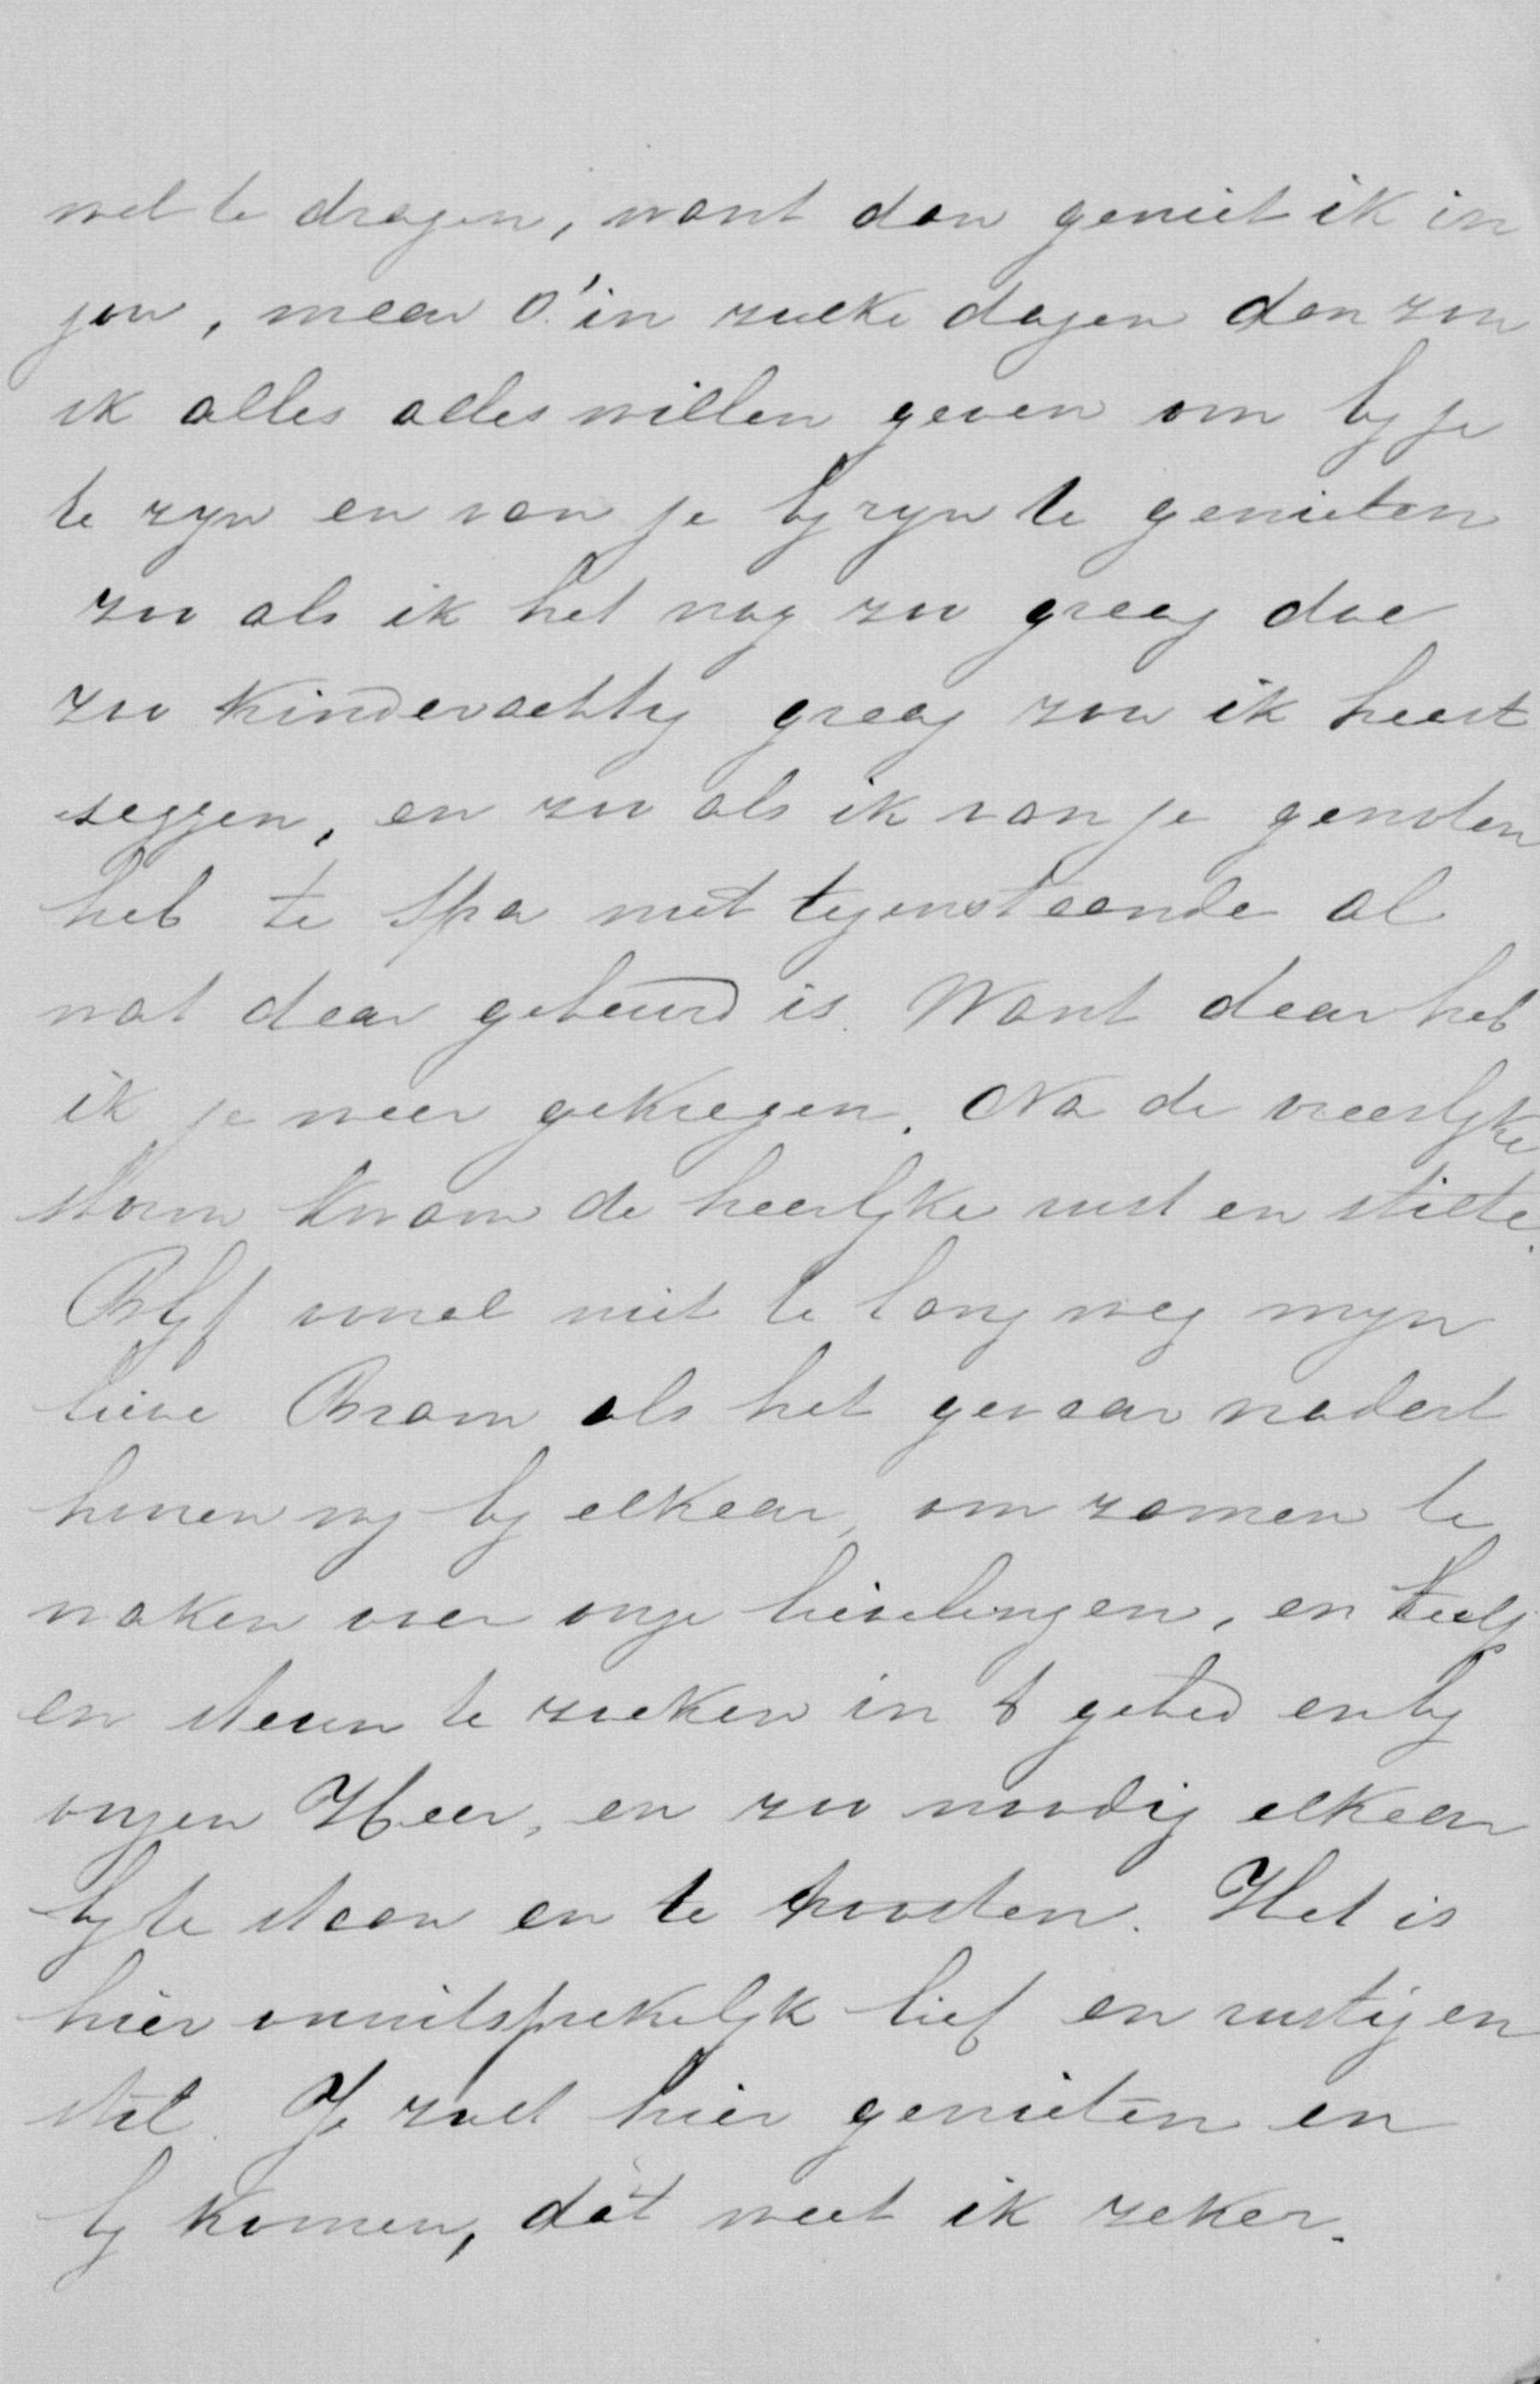 wel te dragen, want dan geniet ik in
jou, maar O! in zulke dagen dan zou
ik alles alles willen geven om by je
te zyn en van je byzyn te genieten
zoo als ik het nog zoo graag doe
zoo kinderachtig graag zou ik haast
zeggen, en zoo als ik van je genoten
heb te Spa niet tegenstaande al
wat daar gebeurd is. Want daar heb
ik je weer gekregen. Na de vreeslyke
storm kwam de heerlyke rust en stilte.
Blyf vooral niet te lang weg myn
lieve Bram als het gevaar nadert
hooren wy by elkaar, om zamen te
waken over onze lievelingen, en hulp
en steun te zoeken in 't gebed en by
onzen Heer, en zoo noodig elkaar
by te staan en te troosten. Het is
hier onuitsprekelyk lief en rustig en
stil. Je zult hier genieten en
by komen, dát weet ik zeker.